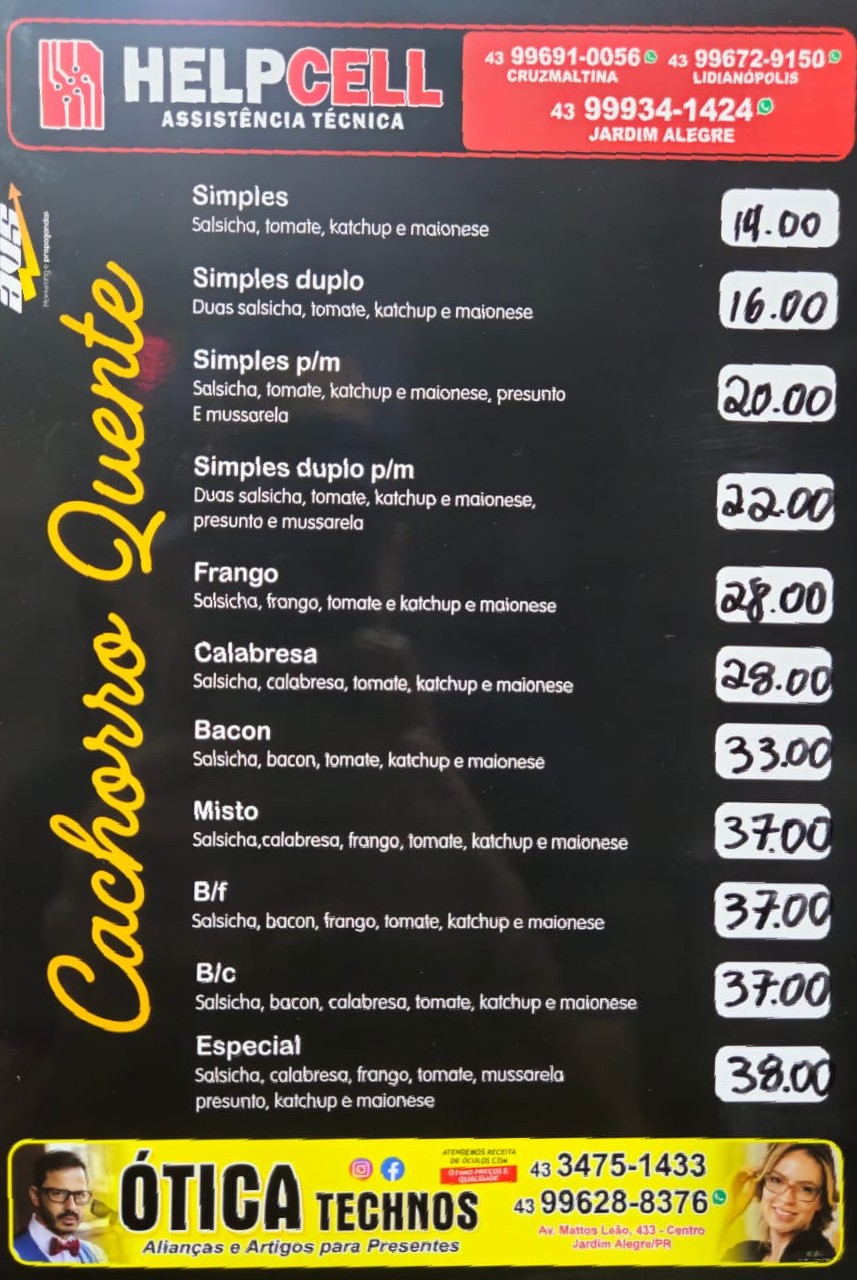 HELPCELL
ASSISTÊNCIA TÉCNICA
43 99691-0056 43 99672-9150
CRUZMALTINA LIDIANÓPOLIS
43 99934-1424
JARDIM ALEGRE
Marketing e propagandas
Cachorro Quente
Simples
Salsicha, tomate, katchup e maionese
14.00
Simples duplo
Duas salsicha, tomate, katchup e maionese
16.00
Simples p/m
Salsicha, tomate, katchup e maionese, presunto
E mussarela
20.00
Simples duplo p/m
Duas salsicha, tomate, katchup e maionese,
presunto e mussarela
22.00
Frango
Salsicha, frango, tomate e katchup e maionese
28.00
Calabresa
Salsicha, calabresa, tomate, katchup e maionese
28.00
Bacon
Salsicha, bacon, tomate, katchup e maionese
33.00
Misto
Salsicha,calabresa, frango, tomate, katchup e maionese
37.00
B/f
Salsicha, bacon, frango, tomate, katchup e maionese
37.00
B/c
Salsicha, bacon, calabresa, tomate, katchup e maionese
37.00
Especial
Salsicha, calabresa, frango, tomate, mussarela
presunto, katchup e maionese
38.00
ÓTICA TECHNOS
Alianças e Artigos para Presentes
ATENDEMOS RECEITA
DE ÓCULOS COM
ÓTIMO PREÇOS E
QUALIDADE
43 3475-1433
43 99628-8376
Av. Mattos Leão, 433 - Centro
Jardim Alegre/PR